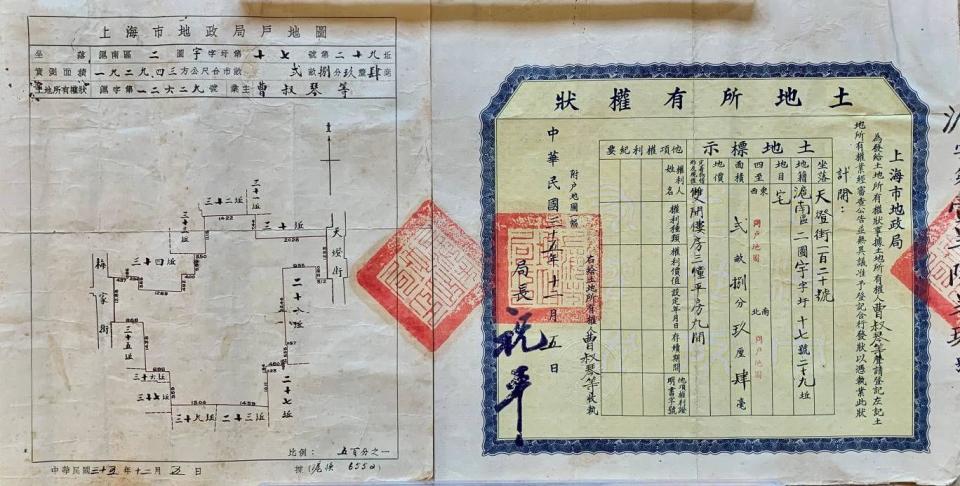 上海市地政局戶地圖
坐落 滬南區 二 圖 宇 字圩第 十七 號第二十九坵
實測面積 一九二九四三方公尺合市畝 弍畝捌分玖釐肆毫
土地所有權狀 滬字第一二六二九號 業主 曹叔琴等
三十一坵
三十二坵
1422
三十坵
2028
三十三坵
天燈街
三十四坵
梅家街
二十八坵
三十五坵
三十六坵
三十七坵
二十七坵
三十九坵
二十三坵
1504
1459
比例：五百分之一
中華民國三十五年十二月五日
據(滬頂 6550)
土地所有權狀
上海市地政局
為發給土地所有權狀事據土地所有權人曹叔琴等聲請登記左記土
地所有權業經審查公告並無異議准予登記合行發狀以憑執業此狀
計開：
土地標示
坐落 天燈街一百二十號
地籍 滬南區二圖宇字圩十七號二十九坵
地目 宅
四至 東 西 南 北 詳戶地圖 詳戶地圖
面積 弍畝捌分玖厘肆毫
地價
雙間樓房三幢平房九間
他項權利紀要
權利人姓名
權利種類
權利價值
設定年月日
存續期間
他項權利證明書字號
右給土地所有權人曹叔琴等收執
附戶地圖一紙
局長
祝平
中華民國三十五年十二月五日